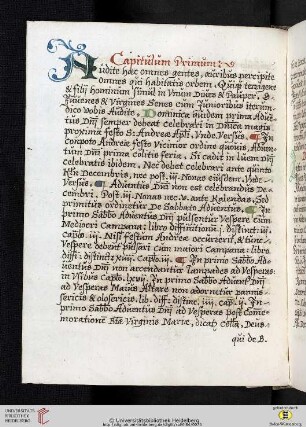 Capitulum Primum:
Audite hæc omnes gentes, auribus percipite
omnes qui habitatis orbem. Quiq; terrigenæ
& filij hominum simul in Venum Diues & Pauper.
Iuuenes & Virgines Senes cum Junioribus
dico vobis Audite. Dominica quidem prima Aduē-
tus Dñi semper debeat celebrari in Dñica magis
proxima festo S: Andreæ Apli. Vnde Versus. In
Andreæ festo Vicinior ordine quouis, Aduen-
tum Dñi prima colitur feria. Si cadit in lucem dñi
celebratis ibidem. Nec debet celebrari ante quintū
Kłn Decembris, nec post. iij. Nonas eiusdem. Vnde
Versus. Aduentus Dñi non est celebrandus De-
cembri. Post. iij. Nonas nec. v. ante Kalendas. Sed
De Sabbato Aduentus. In
primo Sabbo Aduentus Dñi pulsentur Vesperæ cum
Mediocri Campana: libro diffinitionū. j. distinct:
Nisi festum Andreæ occurrerit, & tunc
Vesperæ debent pulsari cum maiori Campana: libro
diffi: distinct: Caplo. ij. In primo Sabbo Ad-
uentus Dñi non accendantur Lampades ad Vesperas
in Vsibus Caplo. In primo Sabbo Aduent: Dñi
ad Vesperas Maius Altare non adornetur pannis
sericis & olosericis. lib: diff: distinc: iiij. cap. ij. In
primo Sabbo Aduentus Dñi ad Vesperas post Com-
memorationē Stæ Virginis Mariæ, dicatr Colla, Deus
qui de B.
UNIVERSITÄTS-
BIBLIOTHEK
HEIDELBERG
© Universitätsbibliothek Heidelberg